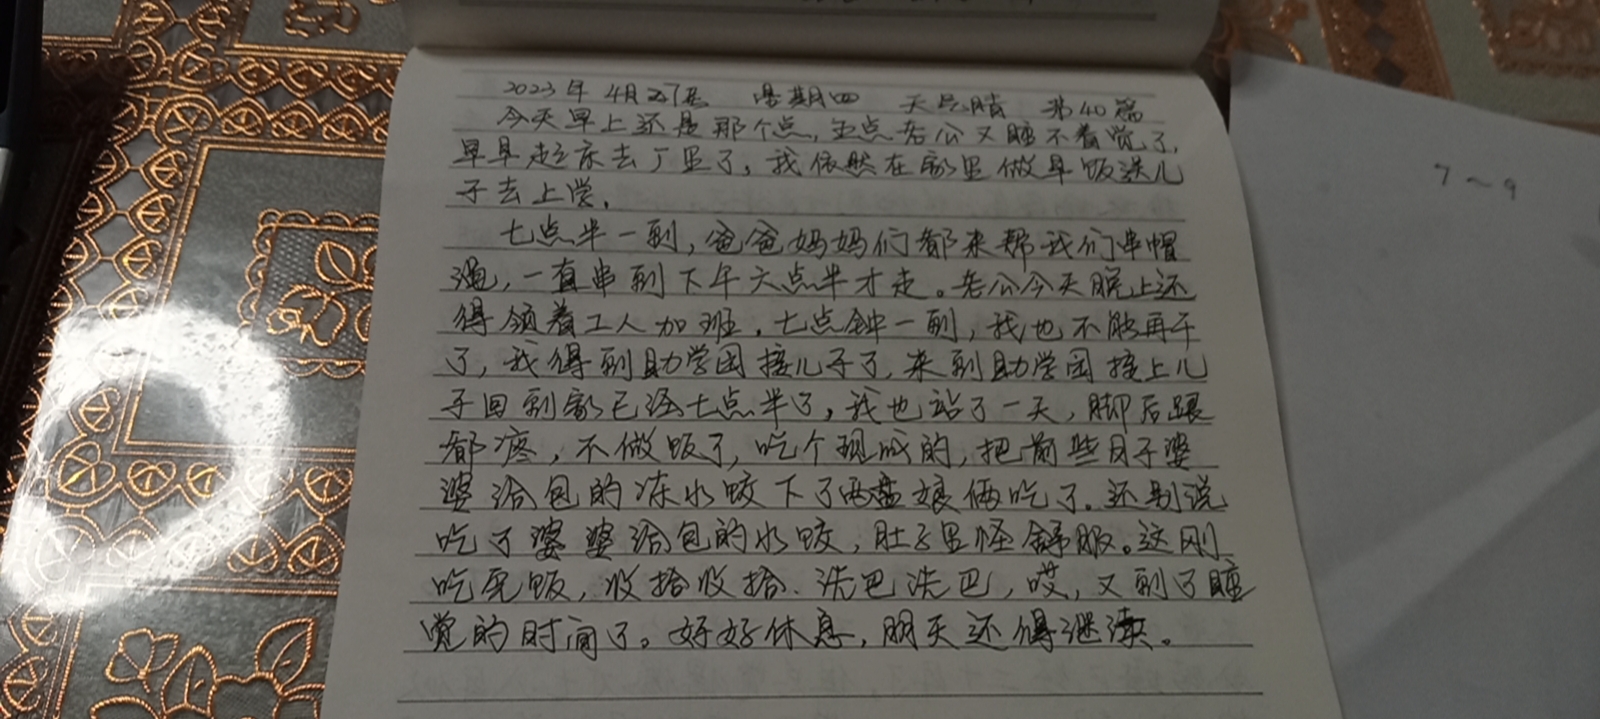 2023年 4月27日 星期四 天气晴 第40篇
今天早上还是那个点,五点老公又睡不着觉了,
早早起床去厂里了,我依然在家里做早饭送儿
子去上学。
七点半一到,爸爸妈妈们都来帮我们串帽
绳,一直串到下午六点半才走。老公今天晚上还
得领着工人加班,七点钟一到,我也不能再干
了,我得到助学园接儿子了,来到助学园接上儿
子回到家已经七点半了,我也站了一天,脚后跟
都疼,不做饭了,吃个现成的,把前些日子婆
婆给包的冻水饺下了两盘娘俩吃了。还别说
吃了婆婆给包的水饺,肚子里怪舒服。这刚
吃完饭,收拾收拾、洗巴洗巴,哎,又到了睡
觉的时间了。好好休息,明天还得继续。
7～9